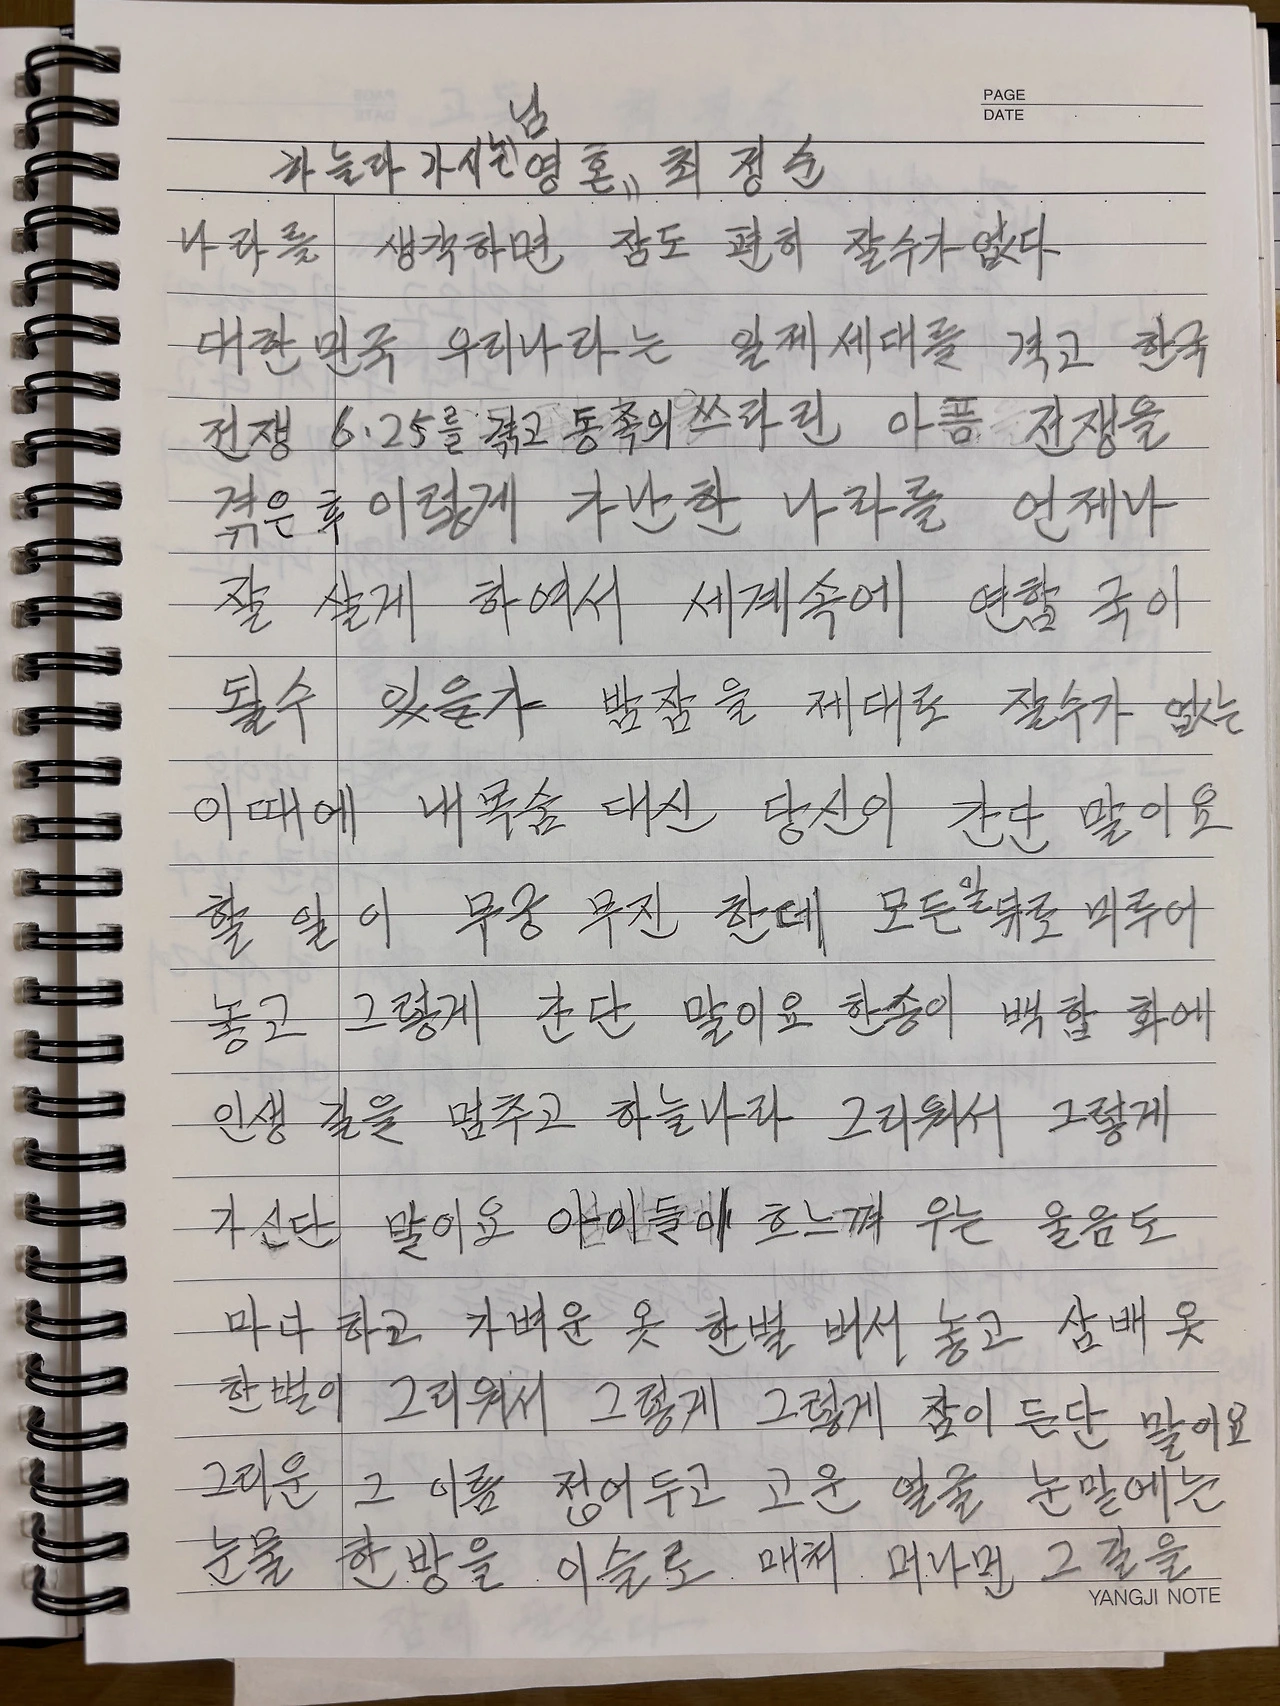 PAGE
DATE
님
하늘라 가시는 영혼" 최정순
나라를 생각하면 잠도 편히 잘수가 없다
대한민국 우리나라는 일제세대를 격고 한국
전쟁 6.25를 겪고 동족의 쓰라린 아픔 전쟁을
겪은 후 이렇게 가난한 나라를 언제나
잘 살게 하여서 세계속에 연합 국이
될수 있을가 밤잠을 제대로 잘수가 없는
이때에 내목숨 대신 당신이 간단 말이요
할 일이 무궁 무진 한데 모든일 뒤로 미루어
놓고 그렇게 간단 말이요 한송이 백합 화에
인생 길을 멈추고 하늘나라 그리워서 그렇게
가신단 말이요 아이들이 흐느껴 우는 울음도
마다 하고 가벼운 옷 한벌 버서 놓고 삼배 옷
한벌이 그리워서 그렇게 그렇게 잠이 든단 말이요
그리운 그 이름 접어두고 고운 얼굴 눈밑에는
눈물 한방을 이슬로 매처 머나먼 그길을
YANGJI NOTE